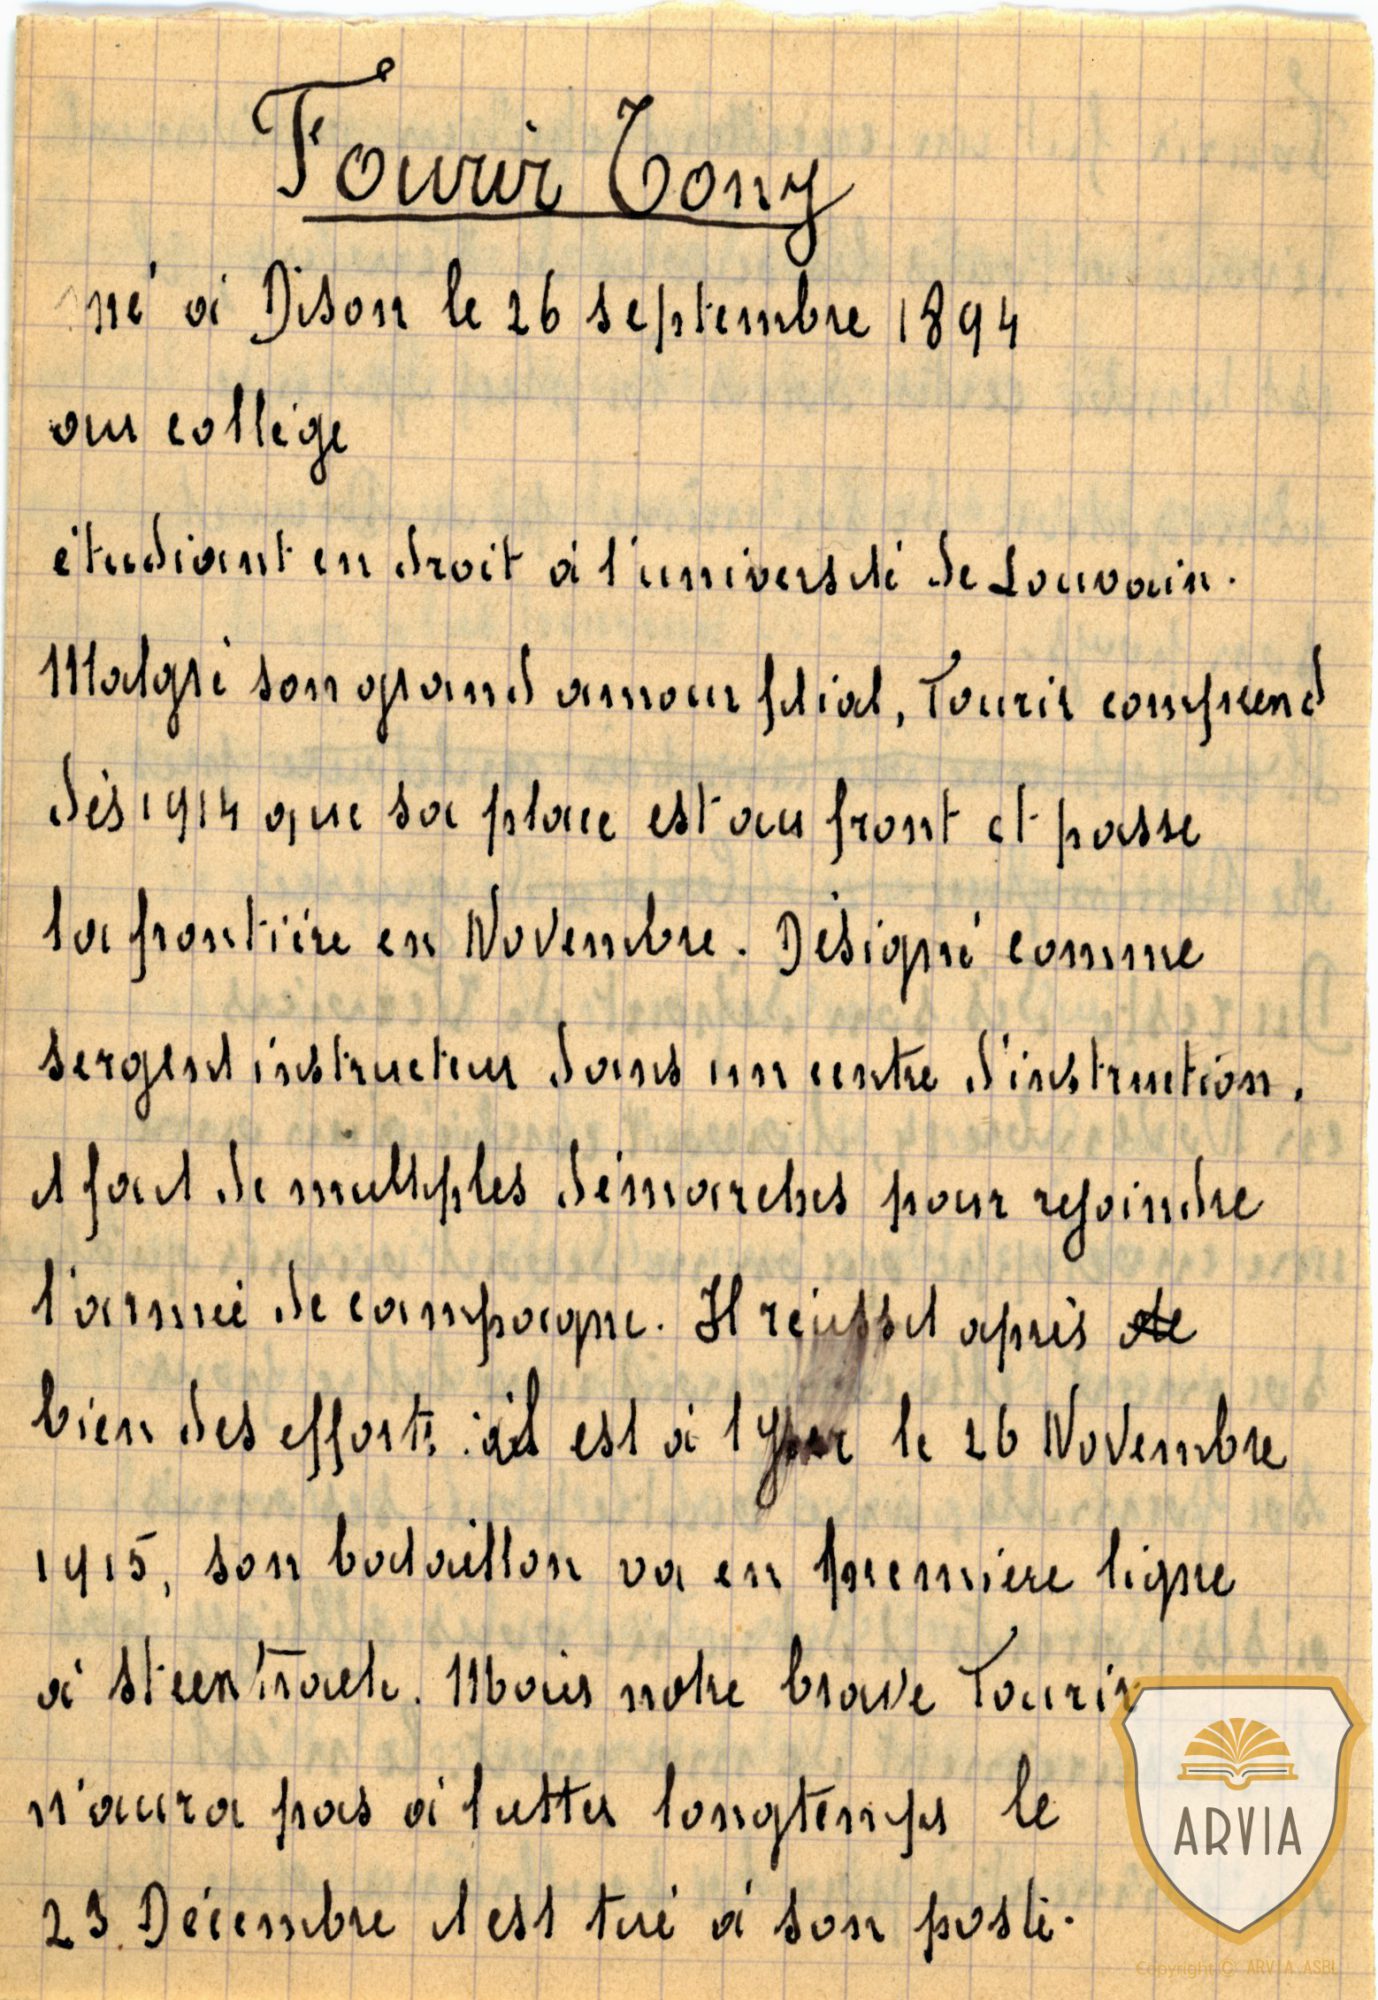 Fourir Tony
né à Dison le 26 septembre 1894
au collège
étudiant en droit à l'université de Louvain.
Malgré son grand amour filial, Fourir comprend
dès 1914 que sa place est au front et passe
la frontière en Novembre. Désigné comme
sergent instructeur dans un centre d'instruction.
il fait de multiples démarches pour rejoindre
l'armée de campagne. Il réussit après
bien des efforts : il est à l'Yser le 26 Novembre
1915, son bataillon va en première ligne
à Steenstraete. Mais notre brave Fourir
n'aura pas à lutter longtemps le
23 Décembre il est tué à son poste.
ARVIA
Copyright © ARVIA ASBL